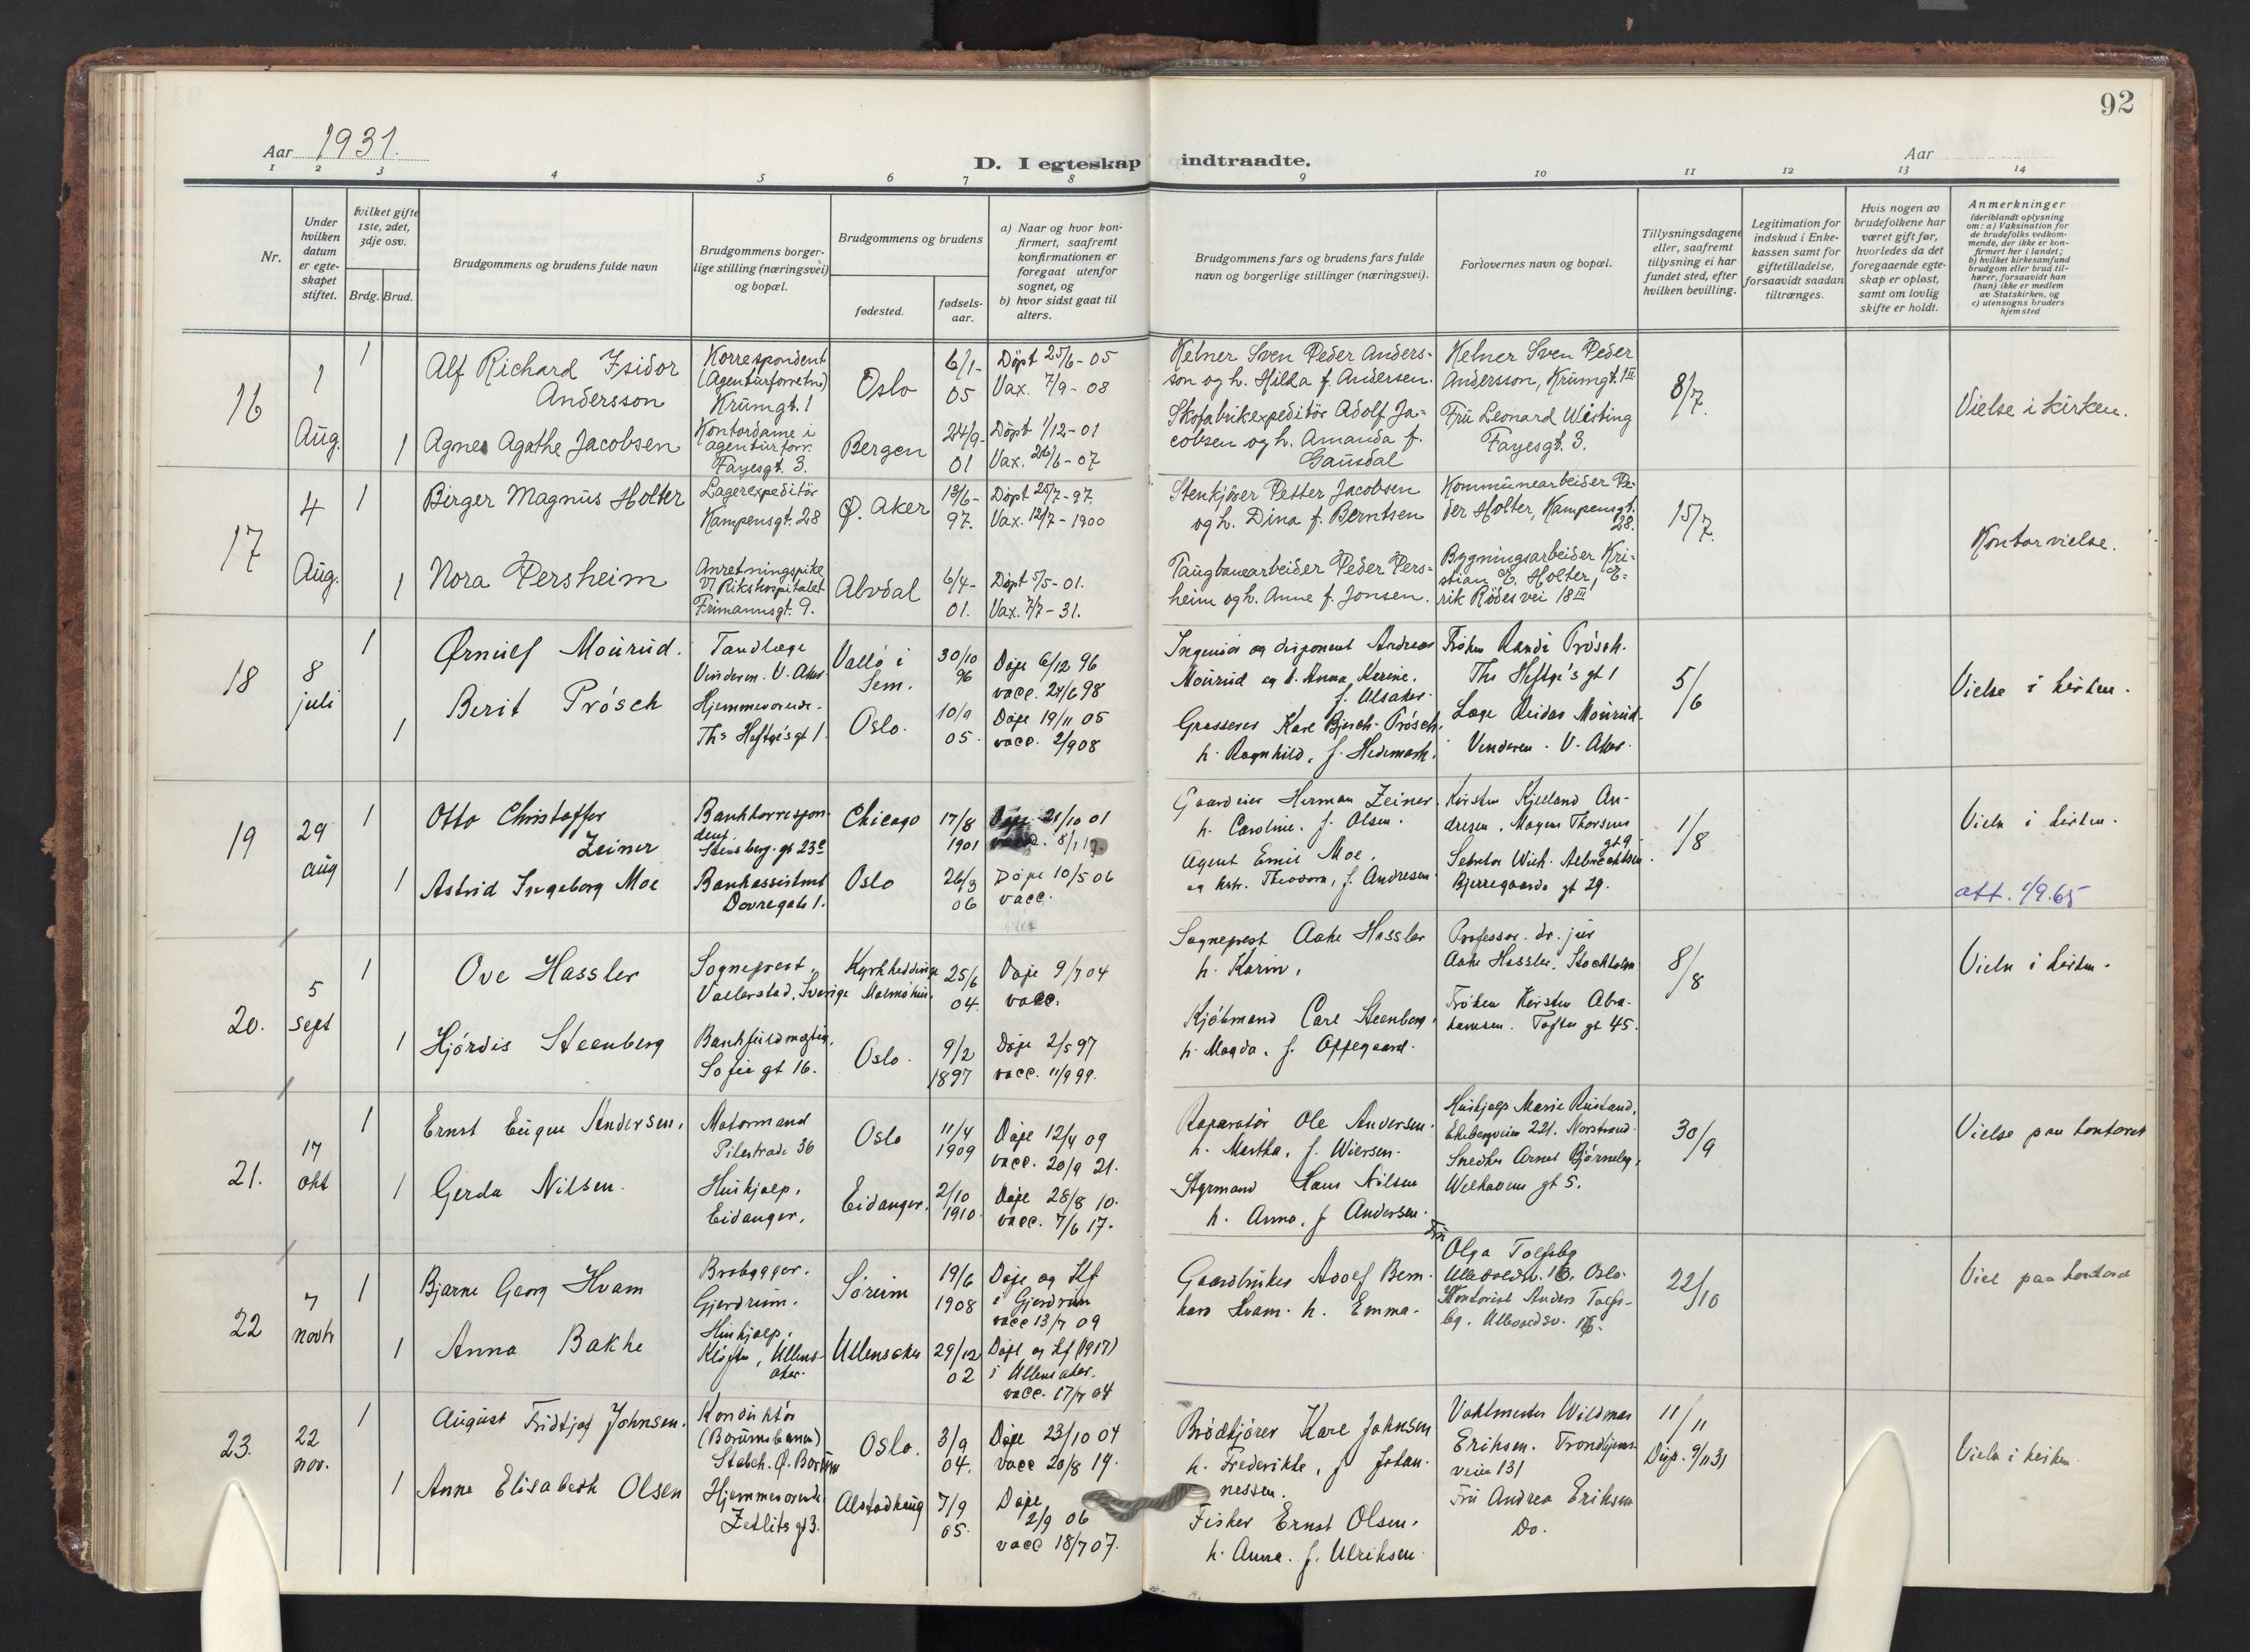 92
Aar 1931.
D. I egteskap indtraadte.
Aar
1 2 3 4 5 6 7 8 9 10 11 12 13 14
Nr.
Under hvilken datum er egteskapet stiftet.
Hvilket gifte 1ste, 2det, 3dje osv.
Brdg. Brud.
Brudgommens og brudens fulde navn
Brudgommens borgerlige stilling (næringsvei) og bopæl.
Brudgommens og brudens
fødested.
fødselsaar.
a) Naar og hvor konfirmert, saafremt konfirmationen er foregaat utenfor sognet, og
b) hvor sidst gaat til alters.
Brudgommens fars og brudens fars fulde navn og borgerlige stillinger (næringsvei).
Forlovernes navn og bopæl.
Tillysningsdagene eller, saafremt tillysning ei har fundet sted, efter hvilken bevilling.
Legitimation for indskud i Enkekassen samt for giftetilladelse, forsaavidt saadan tiltrænges.
Hvis nogen av brudefolkene har været gift før, hvorledes da det foregaaende egteskap er opløst, samt om lovlig skifte er holdt.
Anmerkninger
(deriblandt oplysning om: a) Vaksination for de brudefolks vedkommende, der ikke er konfirmert her i landet; b) hvilket kirkesamfund brudgom eller brud tilhører, forsaavidt han (hun) ikke er medlem av Statskirken, og c) utensogns bruders hjemsted
16
1 Aug.
1
Alf Richard Isidor Andersson
Korrespondent (Agenturforretn) Krumgt. 1
Oslo
6/1-05
Döpt 25/6-05
Vax. 7/9-08
Kelner Sven Peder Andersson og h. Hilda f. Andersen.
Kelner Sven Peder Andersson, Krumgt. 1 II
8/7.
Vielse i kirken.
1
Agnes Agathe Jacobsen
Kontordame i agenturforr. Fayesgt. 3.
Bergen
24/9-01
Döpt 1/12-01
Vax. 26/6-07
Skofabrikexpeditör Adolf Jacobsen og h. Amanda f. Gausdal
Fru Leonard Wisting Fayesgt. 3.
17
4 Aug.
1
Birger Magnus Holter
Lagerexpeditör Kampensgt. 28
Ø. Aker
13/6-97.
Döpt 25/7-97.
Vax. 12/7-1900
Stenkjörer Petter Jacobsen og h. Dina f. Berntsen
Kommunearbeider Peder Holter, Kampensgt. 28.
15/7.
Kontorvielse.
1
Nora Persheim
Anretningspike v/ Rikshospitalet Frimannsgt. 9.
Alvdal
6/4-01.
Döpt 5/5-01.
Vax. 7/7-31.
Taugbanearbeider Peder Persheim og h. Anne f. Jonsen.
Bygningsarbeider Kristian E. Holter, Erik Rödes vei 18 III
18
8 juli
1
Ørnulf Mourud.
Tandlæge Vinderen. V. Aker.
Vallö i Sem.
30/10 96
Döpt 6/12 96
vacc. 24/6 98
Ingeniør og disponent Andreas Mourud og h. Anna Karine, f. Ulsaker.
Frøken Randi Prösch. Ths Heftye's gt 1
5/6
Vielse i kirken.
1
Berit Prösch
Hjemmeværende. Ths Heftye's gt 1.
Oslo.
10/9 05.
Döpt 19/11 05
vacc. 2/9 08
Grosserer Karl Bjerch-Prösch, h. Ragnhild, f. Hedemark.
Læge Reidar Mourud. Vinderen. V. Aker.
19
29 aug
1
Otto Christoffer Zeiner
Bankkorrespondent Stensberg. gt 23 c
Chicago
17/8 1901
21/10 01
8/1 17.
Gaardeier Herman Zeiner. h. Caroline. f. Olsen.
Kirsten Kjelland Andresen. Mogens Thorsens gt 9
1/8
Vielse i kirken.
1
Astrid Ingeborg Moe
Bankassistent Dovregate 1.
Oslo
26/3 06
Döpt 10/5 06
vacc.
Agent Emil Moe, og hstr. Theodora, f. Andresen
Sekretær Wilh. Albrechtsen. Bjerregaards gt 29.
att. 1/9.65
20.
5 sept
1
Ove Hassler
Sogneprest, Vallerstad, Sverige
Kyrkheddinge Malmöhus.
25/6 04.
Döpt 9/7 04
vacc.
Sogneprest Aake Hassler h. Karin,
Professor. dr. jur Aake Hassler, Stockholm
8/8
Vielse i kirken.
1
Hjördis Steenberg
Bankfuldmægtig, Sofie gt 16.
Oslo.
9/2 1897
Döpt 2/5 97
vacc. 11/9 99.
Kjöbmand Carl Steenberg, h. Magda, f. Oppegaard.
Frøken Kirsten Abrahamsen. Toftes gt 45.
21.
17 okt
1
Ernst Eugen Andersen,
Motormand Pilestræde 36
Oslo
11/4 1909
Döpt 12/4 09
vacc. 20/9 21.
Reparatør Ole Andersen. h. Martha, f. Wiersen.
Huskjælp Marie Rustand, Ekebergveien 221. Norstrand.
30/9
Vielse paa kontoret
1
Gerda Nilsen.
Huskjælp, Eidanger,
Eidanger.
2/10 1910.
Döpt 28/8 10.
vacc. 7/6 17.
Styrmand Hans Nilsen h. Anna, f. Andersen.
Snedker Arnt Björneby, Welhavens gt 5.
22
7 novbr
1
Bjarne Georg Hvam
Brobygger. Gjerdrum.
Sørum
19/6 1908
Döpt og kf i Gjerdrum
vacc 13/7 09
Gaardbruker Adolf Bernhard Hvam. h. Emma.
Fru Olga Tolfsby Ullevoldsv. 16. Oslo.
22/10
Viel paa kontoret
1
Anna Bakke
Huskjælp. Kløfta, Ullensaker.
Ullensaker
29/12 02
Döpt og kf (1917) i Ullensaker.
vacc. 17/7 04
Kontorist Anders Tolfsby. Ullevoldsv. 16.
23.
22 nov.
1
August Fridtjof Johnsen.
Konduktør (Bærumsbanen) Stabek. Ø. Bærum
Oslo.
3/9 04.
Döpt 23/10 04
vacc 20/8 19.
Brödkjörer Karl Johnsen h. Frederikke, f Johannessen.
Vaktmester Wildmar Eriksen. Trondhjemsveien 131
11/11
Disp. 9/11 31
Vielse i kirken.
1
Anna Elisabeth Olsen
Hjemmeværende Zetlitz gt 3.
Alstadhaug
7/9 05.
Döpt 2/9 06
vacc 18/7 07.
Fisker Ernst Olsen. h. Anna. f. Ulriksen.
Fru Andrea Eriksen Do.